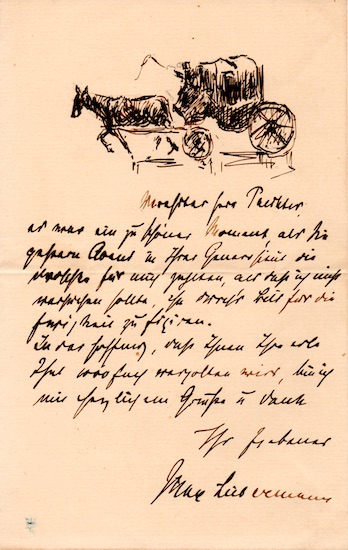 Verehrter Herr Paechter,
es war ein zu schöner Moment, als Sie
gestern Abend in Ihrer Generosität die
Droschke für mich zahlten, als daß ich nicht
versuchen sollte, ihn durch's Bild für die
Ewigkeit zu fixiren.
In der Hoffnung, daß Ihnen Ihre edle
That 1000fach vergolten wird, bin ich
mit herzlichem Gruße u Dank
Ihr ergebener
Max Liebermann